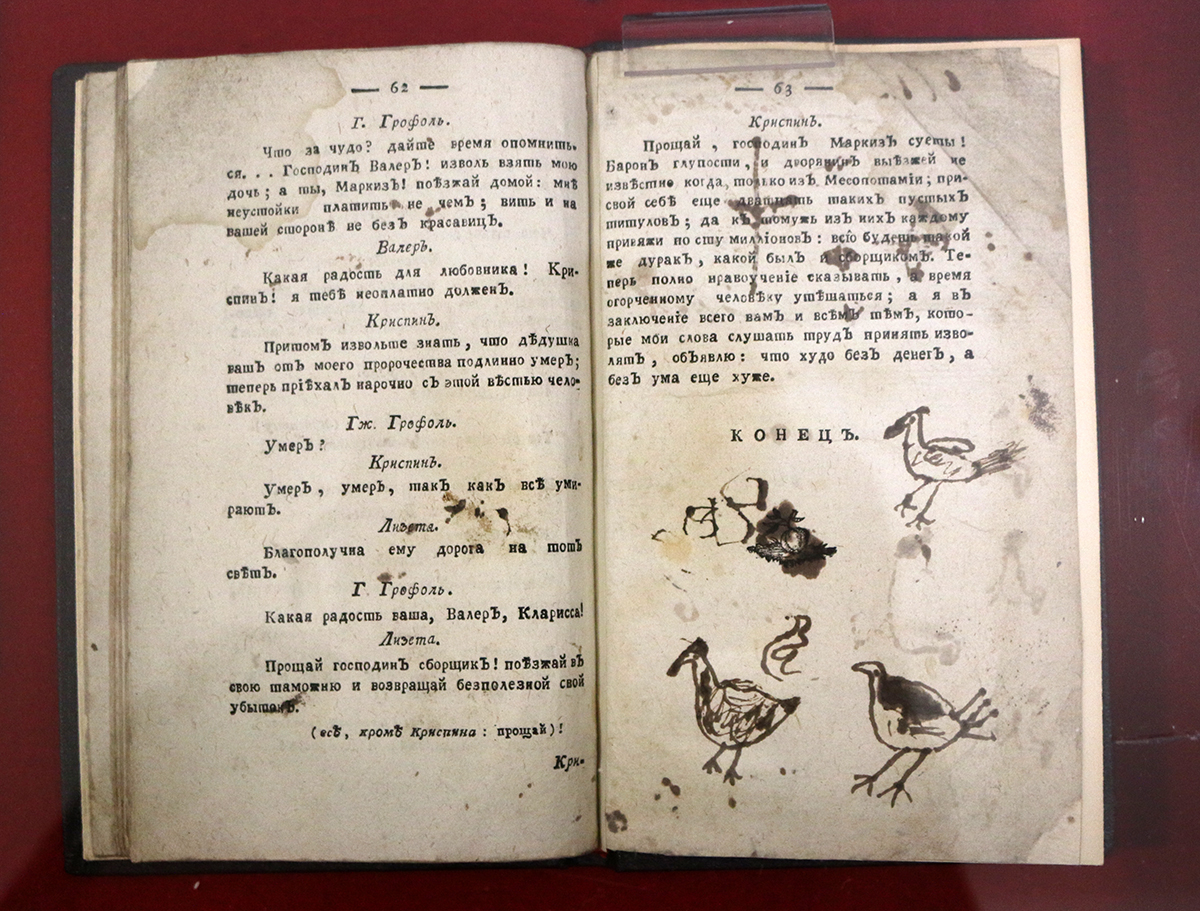 — 62 —
Г. Грофоль.
Что за чудо? дайте время опомнить-
ся. . . ГосподинЪ ВалерЪ! изволь взять мою
дочь; а ты, МаркизЪ! поѣзжай домой: мнѣ
неустойки платить не чемЪ; вить и на
вашей сторонѣ не безЪ красавицЪ.
ВалерЪ.
Какая радость для любовника! Кри-
спинЪ! я тебѣ неоплатно долженЪ.
КриспинЪ.
ПритомЪ извольте знать, что дѣдушка
вашЪ отЪ моего пророчества подлинно умерЪ;
теперь пріѣхалЪ нарочно сЪ этой вѣстью чело-
вѣкЪ.
Гж. Грофоль.
УмерЪ?
КриспинЪ.
УмерЪ, умерЪ, такЪ какЪ всѣ уми-
раютЪ.
Лизета.
Благополучна ему дорога на тотЪ
свѣтЪ.
Г Грофоль.
Какая радость ваша, ВалерЪ, Кларисса!
Лизета.
Прощай господинЪ сборщикЪ! поѣзжай вЪ
свою таможню и возвращай безполезной свой
убытокЪ.
(всѣ, кромѣ Криспина: прощай)!
Кри-
— 63 —
КриспинЪ.
Прощай, господинЪ МаркизЪ суеты!
БаронЪ глупости, и дворянинЪ выѣзжей не
извѣстно когда, только изЪ Месопотаміи; при-
свой себѣ еще дватцать такихЪ пустыхЪ
титуловЪ; да кЪ томужЪ изЪ нихЪ каждому
привяжи по сту милліоновЪ: всіо будешь такой
же дуракЪ, какой былЪ и сборщикомЪ. Те-
перь полно нравоученіе сказывать, а время
огорченному человѣку утѣшаться; а я вЪ
заключеніе всего вамЪ и всѣмЪ тѣмЪ, кото-
рые мои слова слушать трудЪ принять изво-
лятЪ, объявлю: что худо безЪ денегЪ, а
безЪ ума еще хуже.
КОНЕЦЪ.